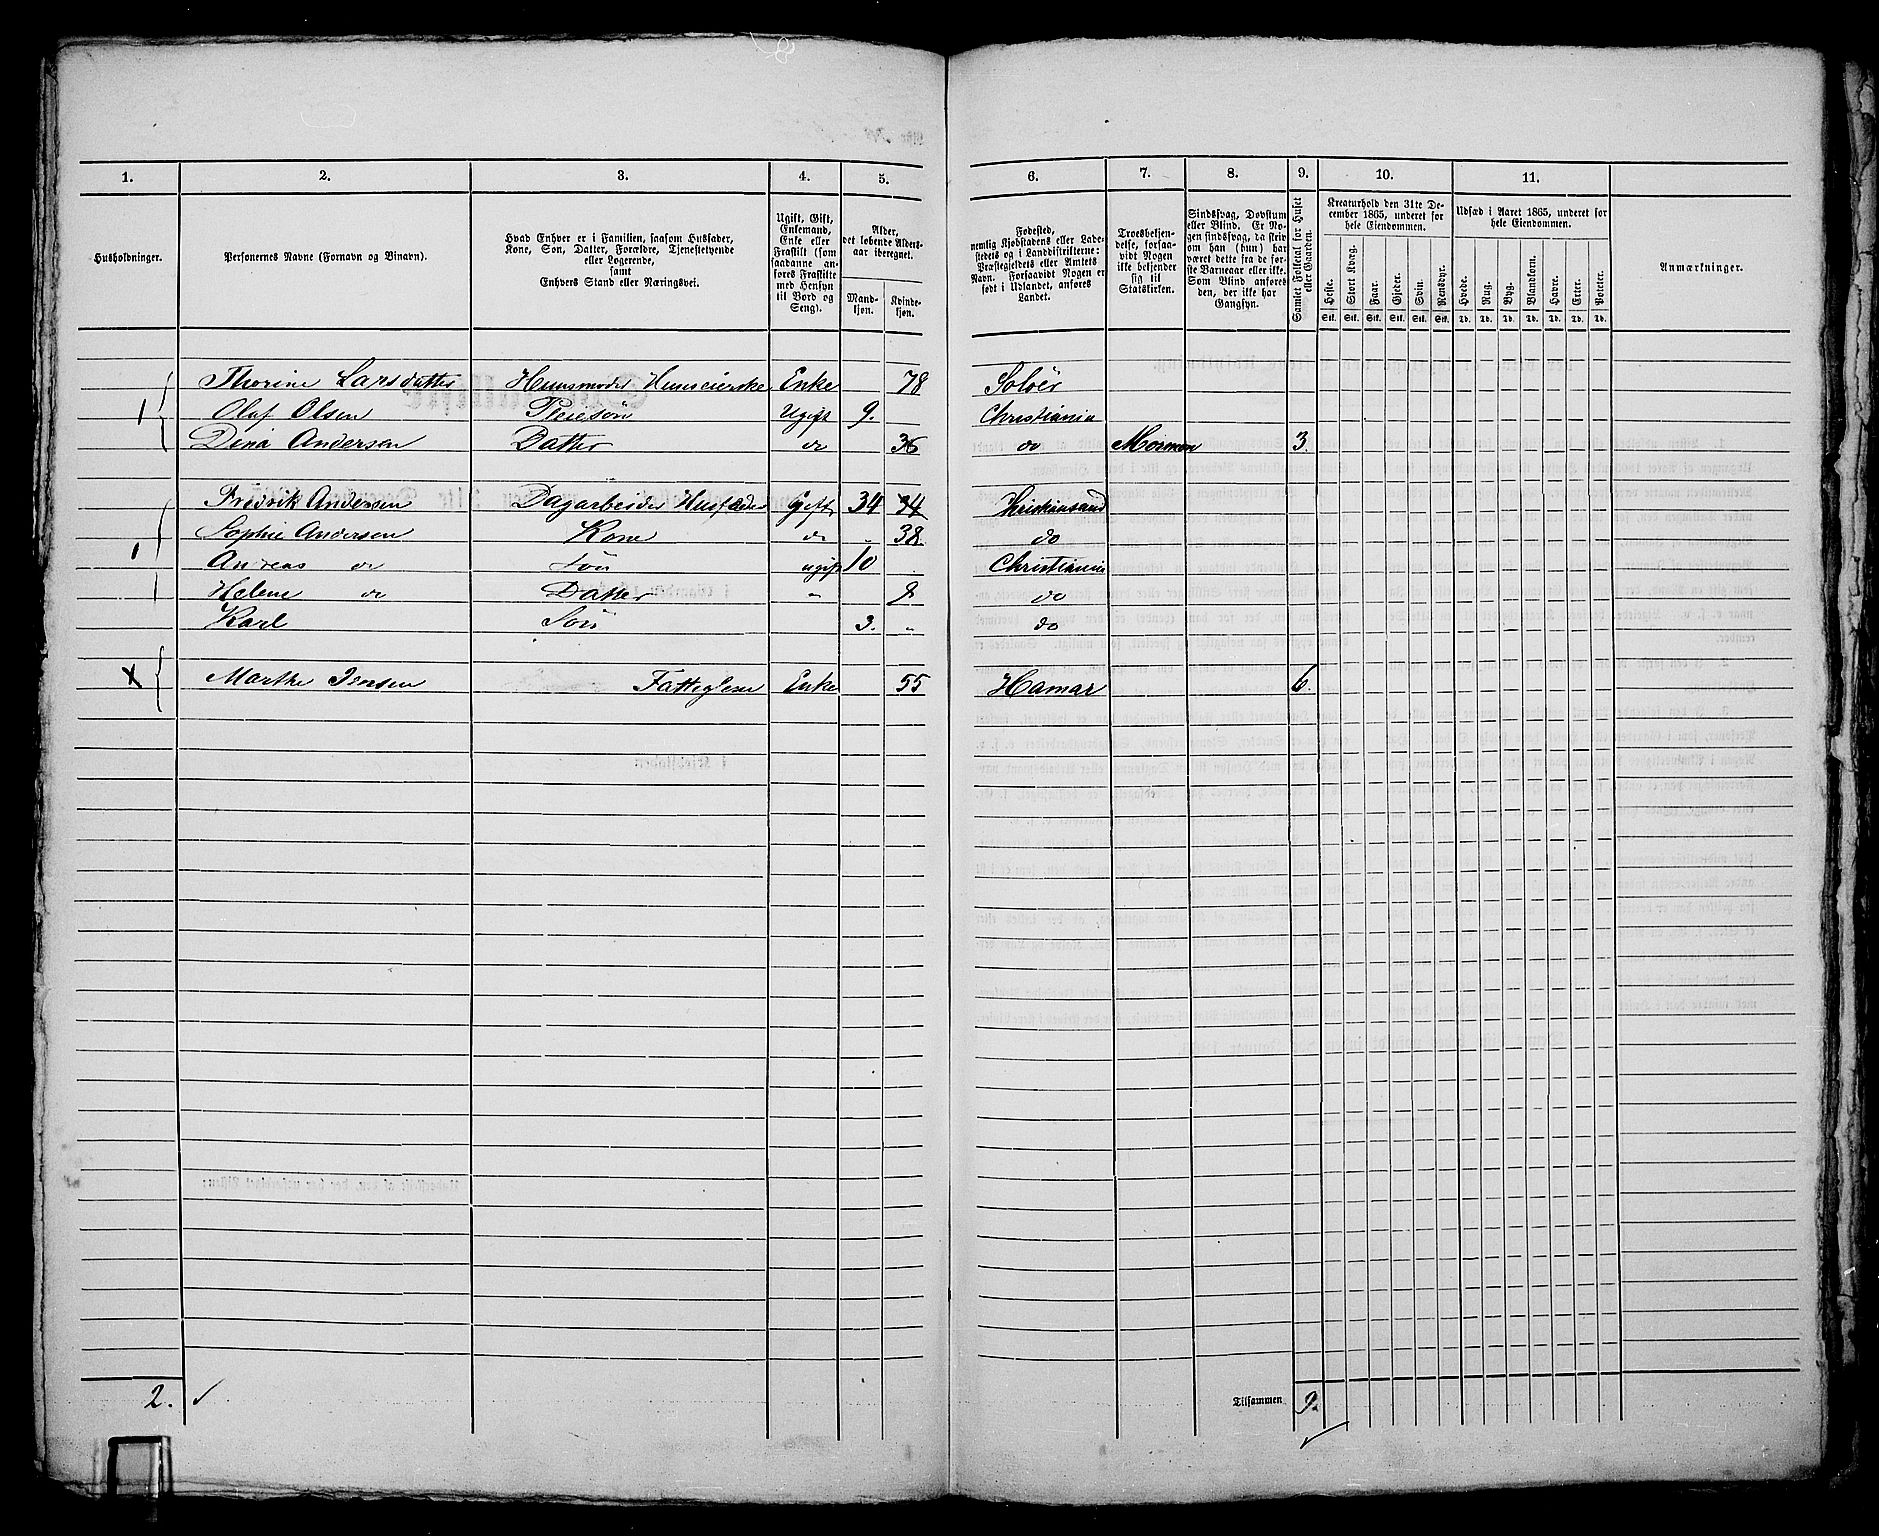 1. 2. 3. 4. 5. 6. 7. 8. 9. 10. 11.
Husholdninger.
Personernes Navne (Fornavn og Binavn).
Hvad Enhver er i Familien, saasom Husfader,
Kone, Søn, Datter, Forældre, Tjenestetyende
eller Logerende,
samt
Enhvers Stand eller Næringsvei.
Ugift, Gift,
Enkemand,
Enke eller
Fraskilt (som
saadanne an-
føres Fraskilte
med Hensyn
til Bord og
Seng).
Alder,
det løbende Alders-
aar iberegnet.
Mand-
kjøn.
Kvinde-
kjøn.
Fødested,
nemlig Kjøbstadens eller Lade-
stedets og i Landdistrikterne:
Præstegjeldets eller Amtets
Navn. Forsaavidt Nogen er
født i Udlandet, anføres
Landet.
Troesbekjen-
delse, forsaa-
vidt Nogen
ikke bekjender
sig til
Statskirken.
Sindssvag, Døvstum
eller Blind. Er No-
gen sindssvag, da skriv
om han (hun) har
været dette fra de før-
ste Barneaar eller ikke.
Som Blind anføres
den, der ikke har
Gangsyn.
Samlet Folketal for Huset
eller Gaarden.
Kreaturhold den 31te De-
cember 1865, underet for
hele Eiendommen.
Heste. Stort Kvæg. Faar. Gjeder. Svin. Rensdyr.
Stk. Stk. Stk. Stk. Stk. Stk.
Udsæd i Aaret 1865, underet for
hele Eiendommen.
Hvede. Rug. Byg. Blandkorn. Havre. Erter. Poteter.
Td. Td. Td. Td. Td. Td. Td.
Anmærkninger.
Thorine Larsdatter Huusmoder Huuseierske Enke 78 Soloër
1 Olaf Olsen Pleiesön Ugift 9. Christiania
Dina Andersen Datter do 36 do Mormon 3.
Fredrik Andersen Dagarbeider Husfader Gift 34 34 Christiansand
Sophie Andersen Kone do " 38. do
1 Andreas do Sön ugift 10 Christiania
Helene do Datter " 8 do
Karl Sön 3. " do
X Marthe Jensen Fattiglem Enke 55 Hamar 6.
2. Tilsammen 9.